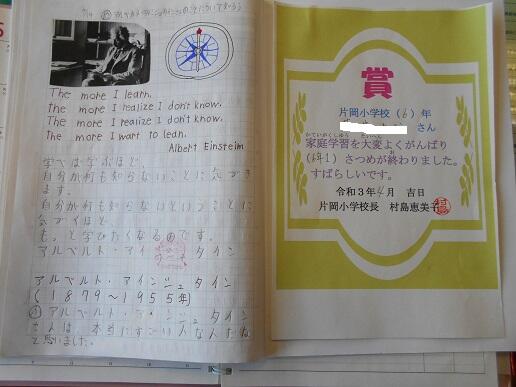 The more I learn.
the more I realize I don't know.
The more I realize I don't know.
the more I want to lean.
Albert Einstein
学べば学ぶほど、
自分が何も知らないことに気づき
ます。
自分が何も知らないということに
気づくほど、
もっと学びたくなるのです。
アルベルト・アインシュタイン
アルベルト・アインシュタイン
(1879～1955年)
アルベルト・アインシュタイン
さんは、本当にすごい人なんだな
と思いました。
賞
片岡小学校(6)年
さん
家庭学習を大変よくがんばり
(6年1)さつめが終わりました。
すばらしいです。
令和3年4月 吉日
片岡小学校長 村島恵美子